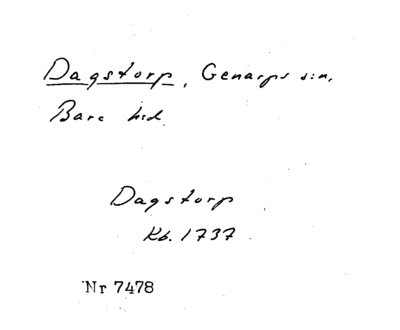 Dagstorp, Genarps sn,
Bare hd.
Dagstorp
Kb. 1737
Nr 7478